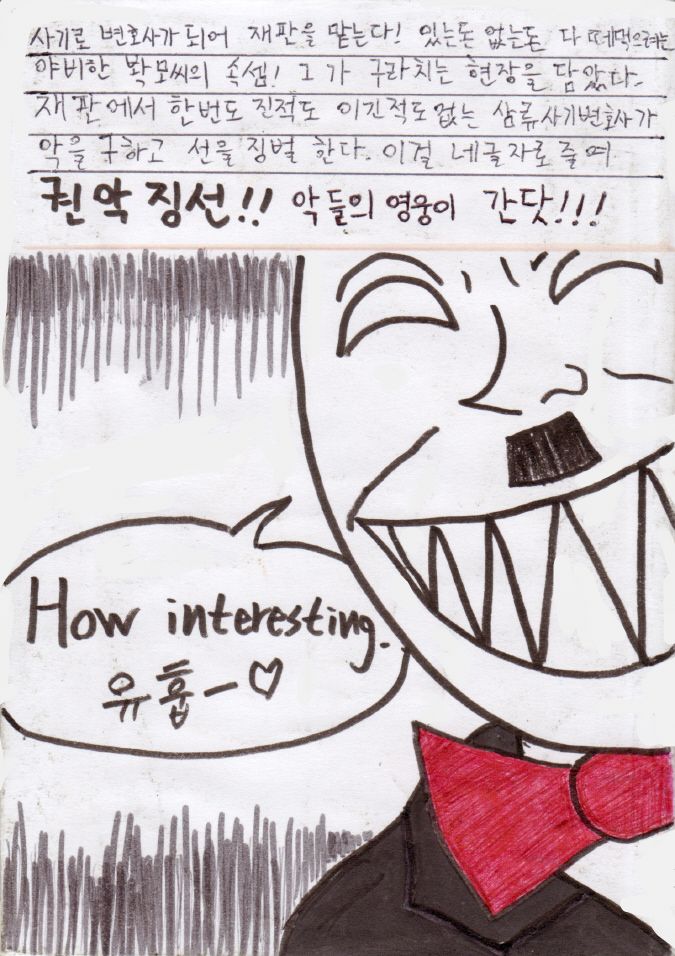 사기로 변호사가 되어 재판을 맡는다! 있는돈 없는돈 다 떼먹으려는
야비한 봑모씨의 속셈! 그가 구라치는 현장을 담았다.
재판에서 한번도 진적도 이긴적도 없는 삼류사기변호사가
악을 구하고 선을 징벌 한다. 이걸 네글자로 줄여
권악징선!! 악들의 영웅이 간닷!!!
How interesting.
유흡ㅡ♡